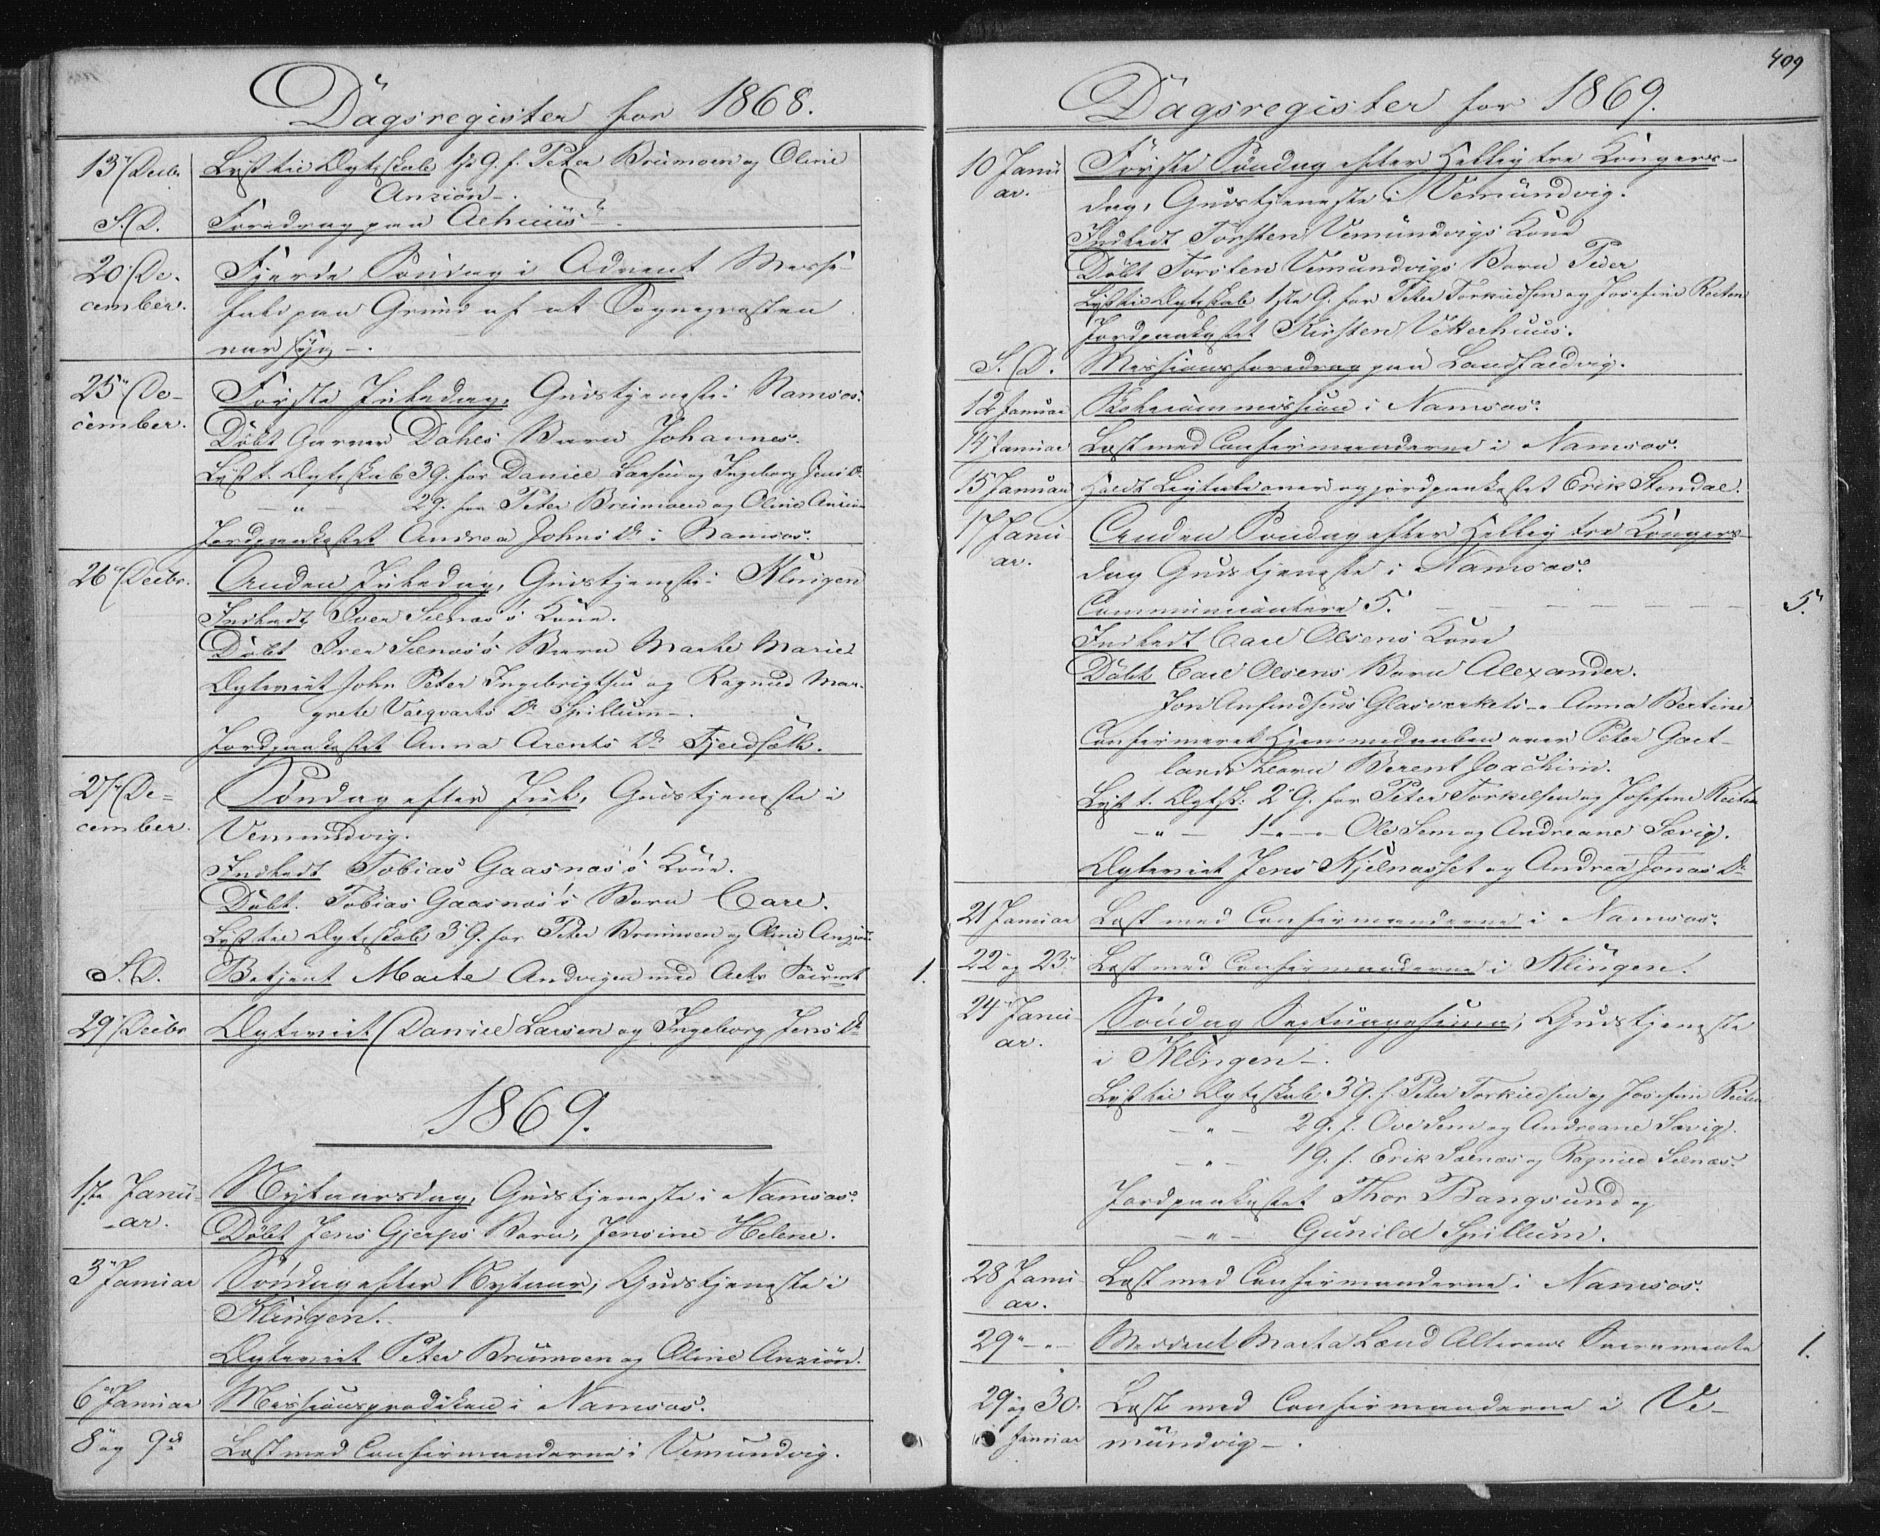 Dagsregister for 1868.
13 Decbr. Lyst til Ægteskab 1ste G. f. Peter Breimoen og Oline
Anzion.
S. D. Foredrag paa Aehuus.
20 De- Fjerde Søndag i Advent Messe-
cember. fald paa Grund af at Sognepræsten
var syg.
25 De- Første Juledag, Gudstjeneste i Namsos.
cember. Døbt Garver Dahls Barn Johannes.
Lyst t. Ægteskab 3 G. for Daniel Larsen og Ingeborg Jens D.
— " — 2 G. for Peter Breimoen og Oline Anzion
Jordpaakastet Andrea Johns D. i Namsos.
26 Decbr. Anden Juledag, Gudstjeneste i Klingen
Indledt Iver Selnæs's Kone.
Døbt Iver Selnæs's Barn Marthe Marie
Ægteviet John Peter Ingebrigtsen og Ragnild Mar-
grete D. Spillum.
Jordpaakastet Anna Arents D.
27 De- Søndag efter Jul, Gudstjeneste i
cember. Vemundvig.
Indledt Tobias Gaasnæs's Kone.
Døbt. Tobias Gaasnæs's Barn Carl.
Lyst til Ægteskab 3 G. for Peter Breimoen og Oline Anzion
S. D. Betjent Marte Andvigen med Alts Sacrmt. 1.
29 Decbr Ægteviet Daniel Larsen og Ingeborg Jens D.
1869.
1ste Janu- Nytaarsdag, Gudstjeneste i Namsos.
ar. Døbt Jens Gjerps Barn, Jensine Helene.
3 Januar Søndag efter Nytaar, Gudstjeneste i
Klingen.
Ægteviet Peter Breimoen og Oline Anzion.
6 Januar Missionsprædiken i Namsos.
8 og 9de Læst med Confirmanderne i Vemundvig.
409
Dagsregister for 1869.
10 Janu- Første Søndag efter Hellig tre Konger-
ar. dag, Gudstjeneste i Vemundvig.
Indledt Torsten Vemundvigs Kone
Døbt Torsten Vemundvigs Barn Peder
Lyst til Ægteskab 1ste G. for Peter Torkildsen og Josefine Reiten
Jordpaakastet Kirsten Vetterhuus.
S. D. Missionsforedrag paa
12 Januar Skolecommission i Namsos.
14 Januar Læst med Confirmanderne i Namsos.
15 Januar Holdt Ligtale over og jordpaakastet Erik Stendal.
17 Janu- Anden Søndag efter Hellig tre Konger-
ar. dag Gudstjeneste i Namsos.
Communicantere 5. — — — — — 5.
Indledt Carl Olsens Kone
Døbt Carl Olsens Barn Alexander.
Jon Anfindsens Glasværkets — " Anna Bertine
Confirmeret Hjemmedaaben over Peter
lands Barn Berent Joachim.
Lyst t. Ægtsk. 2 G. for Peter Torkelsen og Josefine Reiten
— " — 1 — " — Ole Sem og Andreane Sævig.
Ægteviet Jens Kjelnæsset og Andrea Jonas D.
21 Januar Læst med Confirmanderne i Namsos.
22 og 23 Læst med Confirmanderne i Klingen.
24 Janu- Søndag Septuagesima, Gudstjeneste
ar. i Klingen.
Lyst til Ægteskab 3 G. f. Peter Torkildsen og Josefine Reiten
— " — 2 G. f. Ove Sem og Andreane Sævig.
— " — 1 G. f. Erik Selnæs og Ragnild Selnæs.
Jordpaakastet Thor Bangsund og
— " — Gunild Spillum.
28 Janu Læst med Confirmanderne i Namsos.
ar.
29 — " — Meddeelt Marta Lænd Alterens Sacramente 1.
29 og 30. Læst med Confirmanderne i Ve-
Januar mundvig.